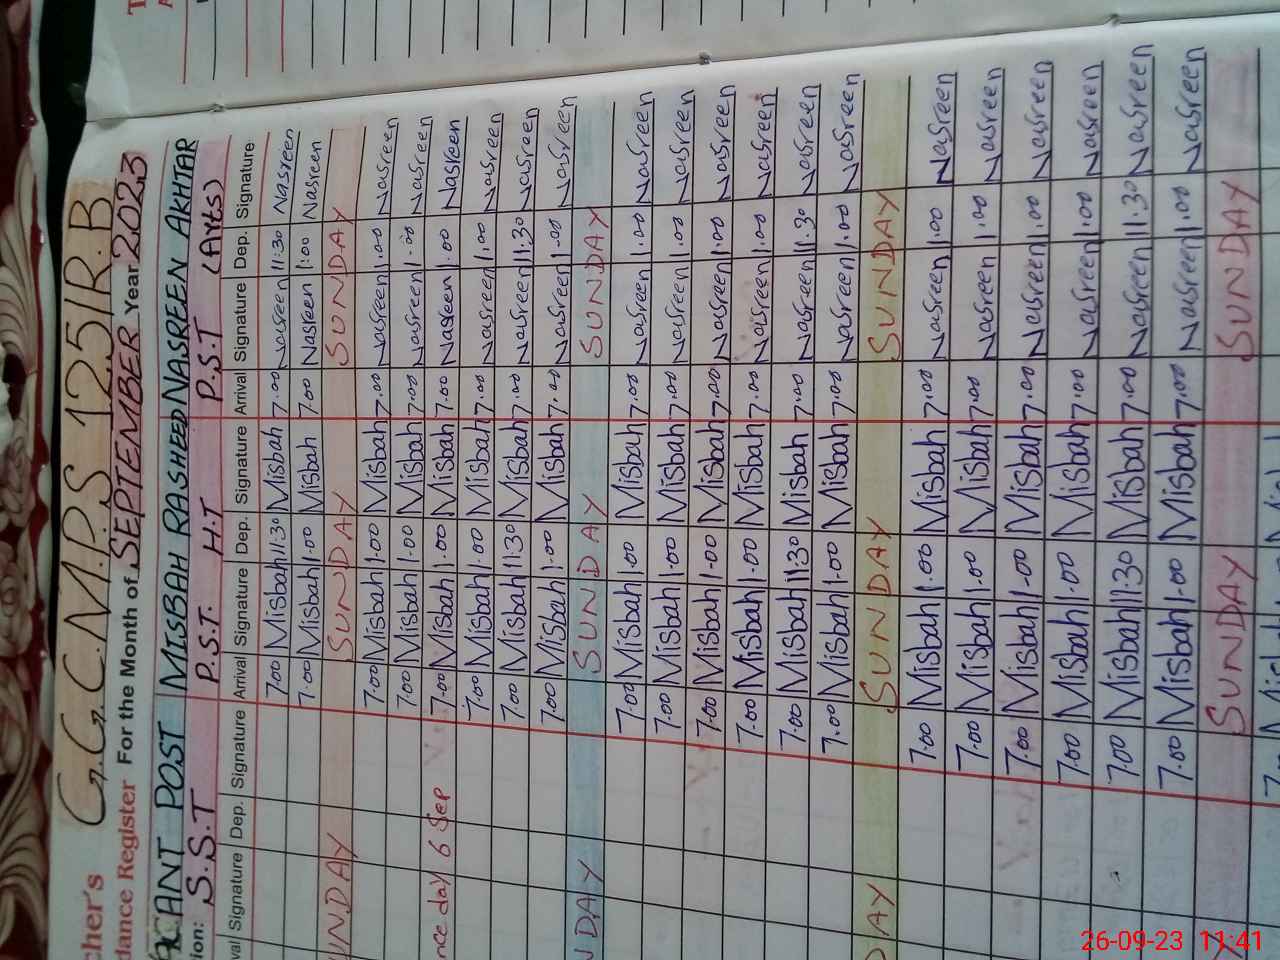 G.G.C.M.P.S 125/R.B
cher's
dance Register For the Month of SEPTEMBER Year 2023
CANT POST MISBAH RASHEED NASREEN AKHTAR
ion: S.S.T P.S.T. H.T P.S.T (Arts)
val Signature Dep. Signature Arrival Signature Dep. Signature Arrival Signature Dep. Signature
7.00 Misbah 11:30 Misbah 7.00 Nasreen 11:30 Nasreen
7.00 Misbah 1.00 Misbah 7.00 Nasreen 1:00 Nasreen
UNDAY SUNDAY SUNDAY
7.00 Misbah 1.00 Misbah 7.00 Nasreen 1.00 Nasreen
7.00 Misbah 1.00 Misbah 7.00 Nasreen 1.00 Nasreen
nce day 6 Sep 7.00 Misbah 1.00 Misbah 7.00 Nasreen 1.00 Nasreen
7.00 Misbah 1.00 Misbah 7.00 Nasreen 1.00 Nasreen
7.00 Misbah 11:30 Misbah 7.00 Nasreen 11:30 Nasreen
7.00 Misbah 1.00 Misbah 7.00 Nasreen 1.00 Nasreen
NDAY SUNDAY SUNDAY
7.00 Misbah 1.00 Misbah 7.00 Nasreen 1.00 Nasreen
7.00 Misbah 1.00 Misbah 7.00 Nasreen 1.00 Nasreen
7.00 Misbah 1.00 Misbah 7.00 Nasreen 1.00 Nasreen
7.00 Misbah 1.00 Misbah 7.00 Nasreen 1.00 Nasreen
7.00 Misbah 11:30 Misbah 7.00 Nasreen 11:30 Nasreen
7.00 Misbah 1.00 Misbah 7.00 Nasreen 1.00 Nasreen
DAY SUNDAY SUNDAY
7.00 Misbah 1.00 Misbah 7.00 Nasreen 1.00 Nasreen
7.00 Misbah 1.00 Misbah 7.00 Nasreen 1.00 Nasreen
7.00 Misbah 1.00 Misbah 7.00 Nasreen 1.00 Nasreen
7.00 Misbah 1.00 Misbah 7.00 Nasreen 1.00 Nasreen
7.00 Misbah 11:30 Misbah 7.00 Nasreen 11:30 Nasreen
7.00 Misbah 1.00 Misbah 7.00 Nasreen 1.00 Nasreen
SUNDAY SUNDAY
26-09-23 11:41